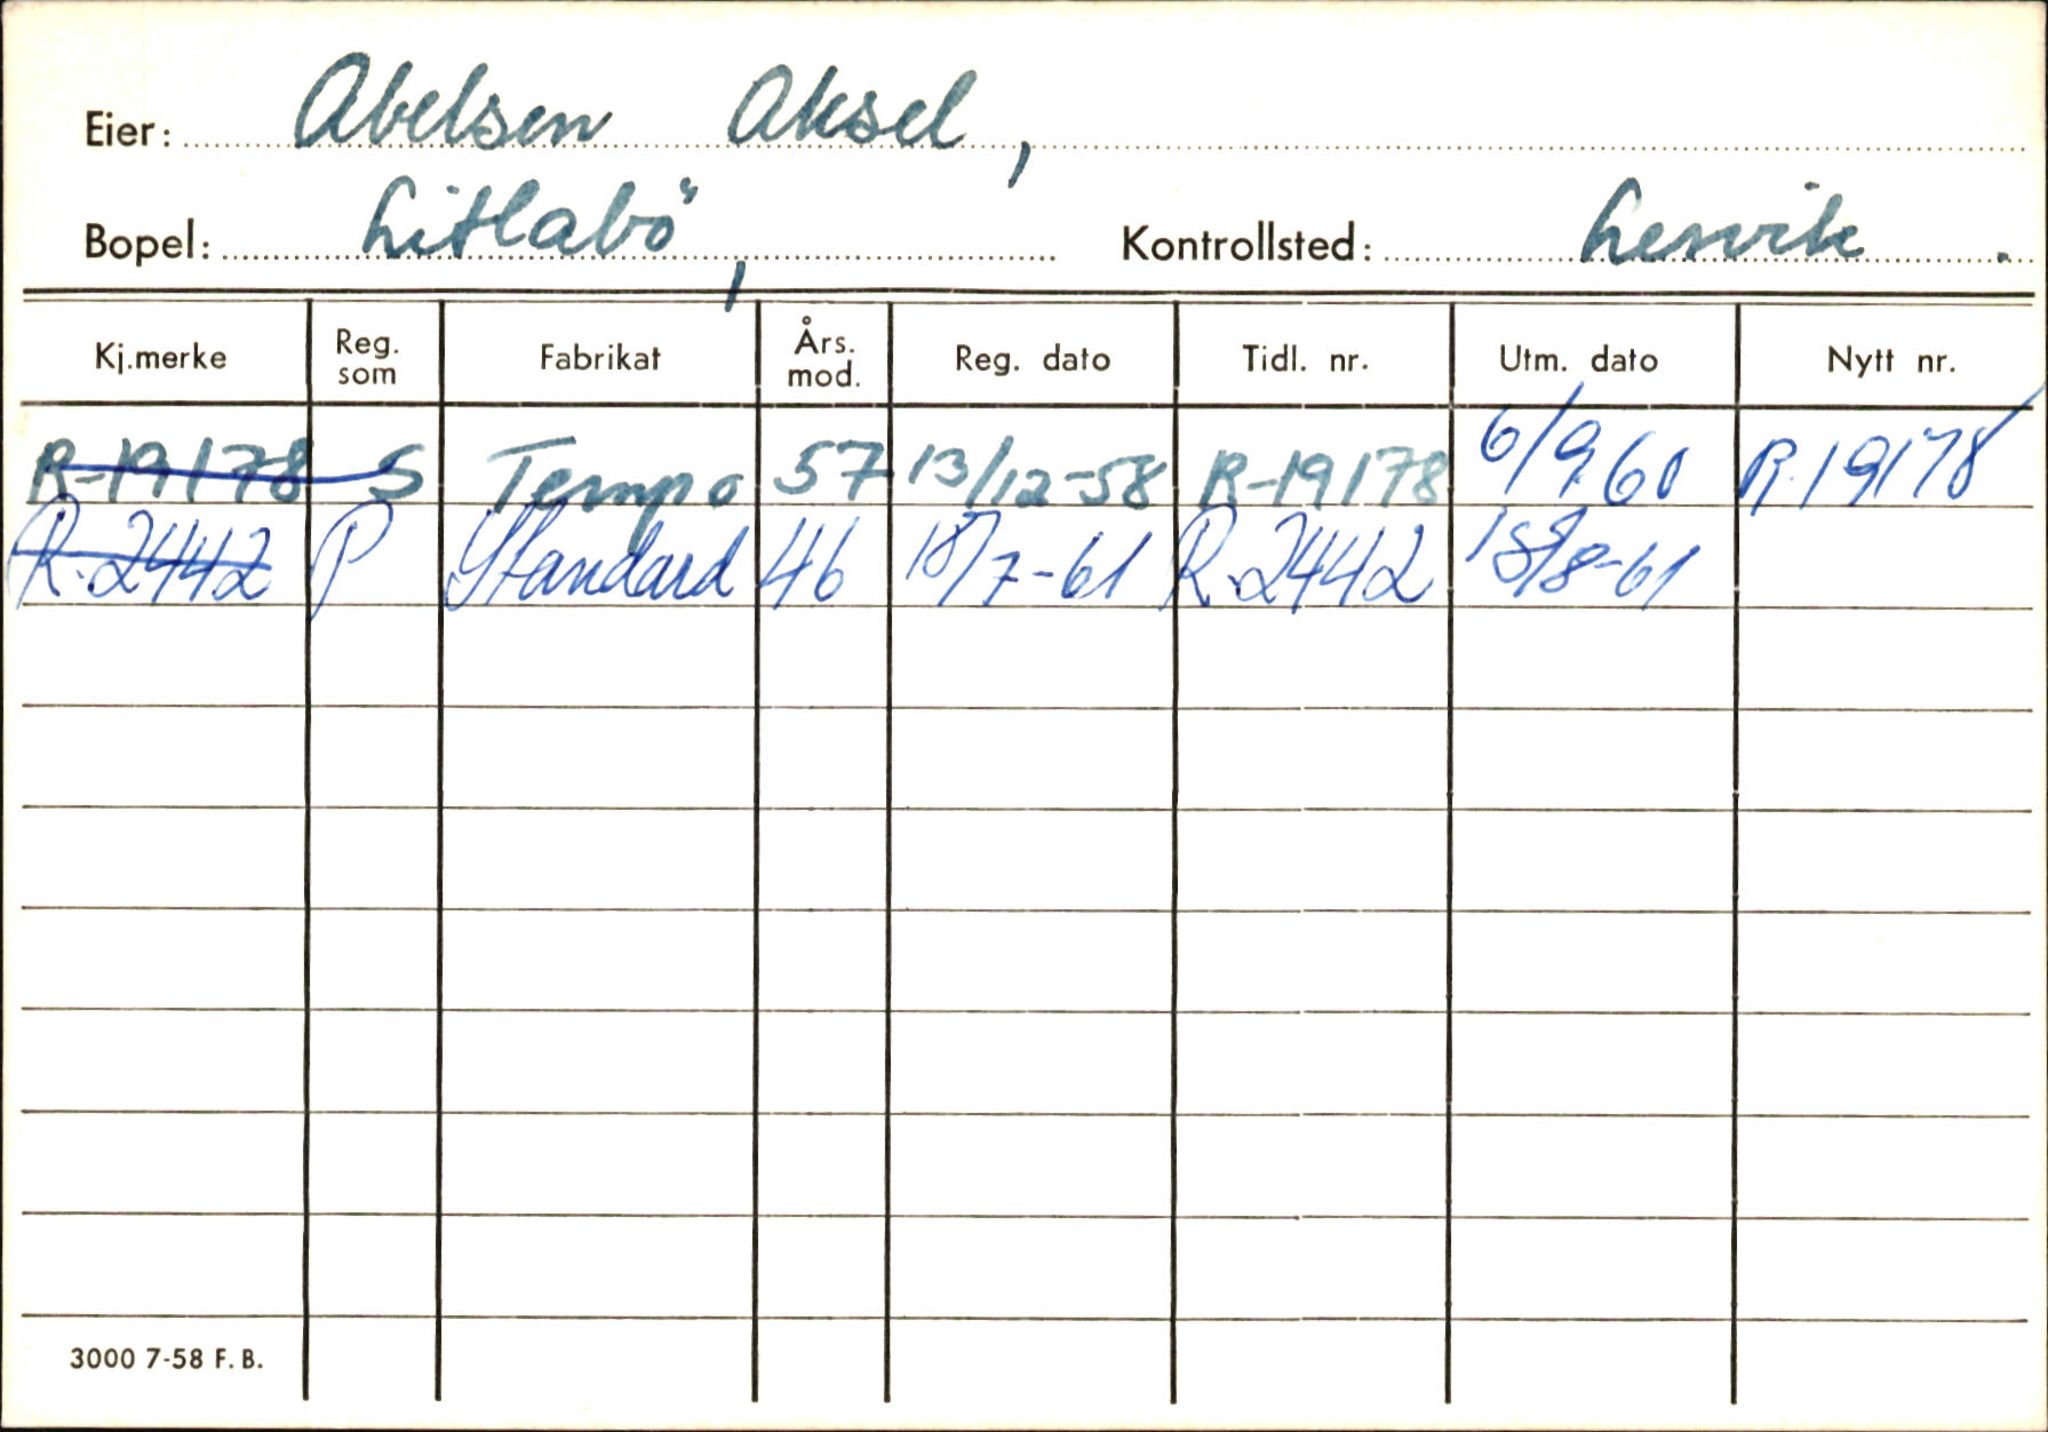 Eier: Abelsen Aksel,
Bopel: Litlabö, Kontrollsted: Lervik.
Kj.merke Reg. som Fabrikat Års. mod. Reg. dato Tidl. nr. Utm. dato Nytt nr.
R-19178 S Tempo 57 13/12-58 R-19178 6/9.60 R.19178
R.2442 P Standard 46 18/7-61 R.2442 15/8-61
3000 7-58 F. B.